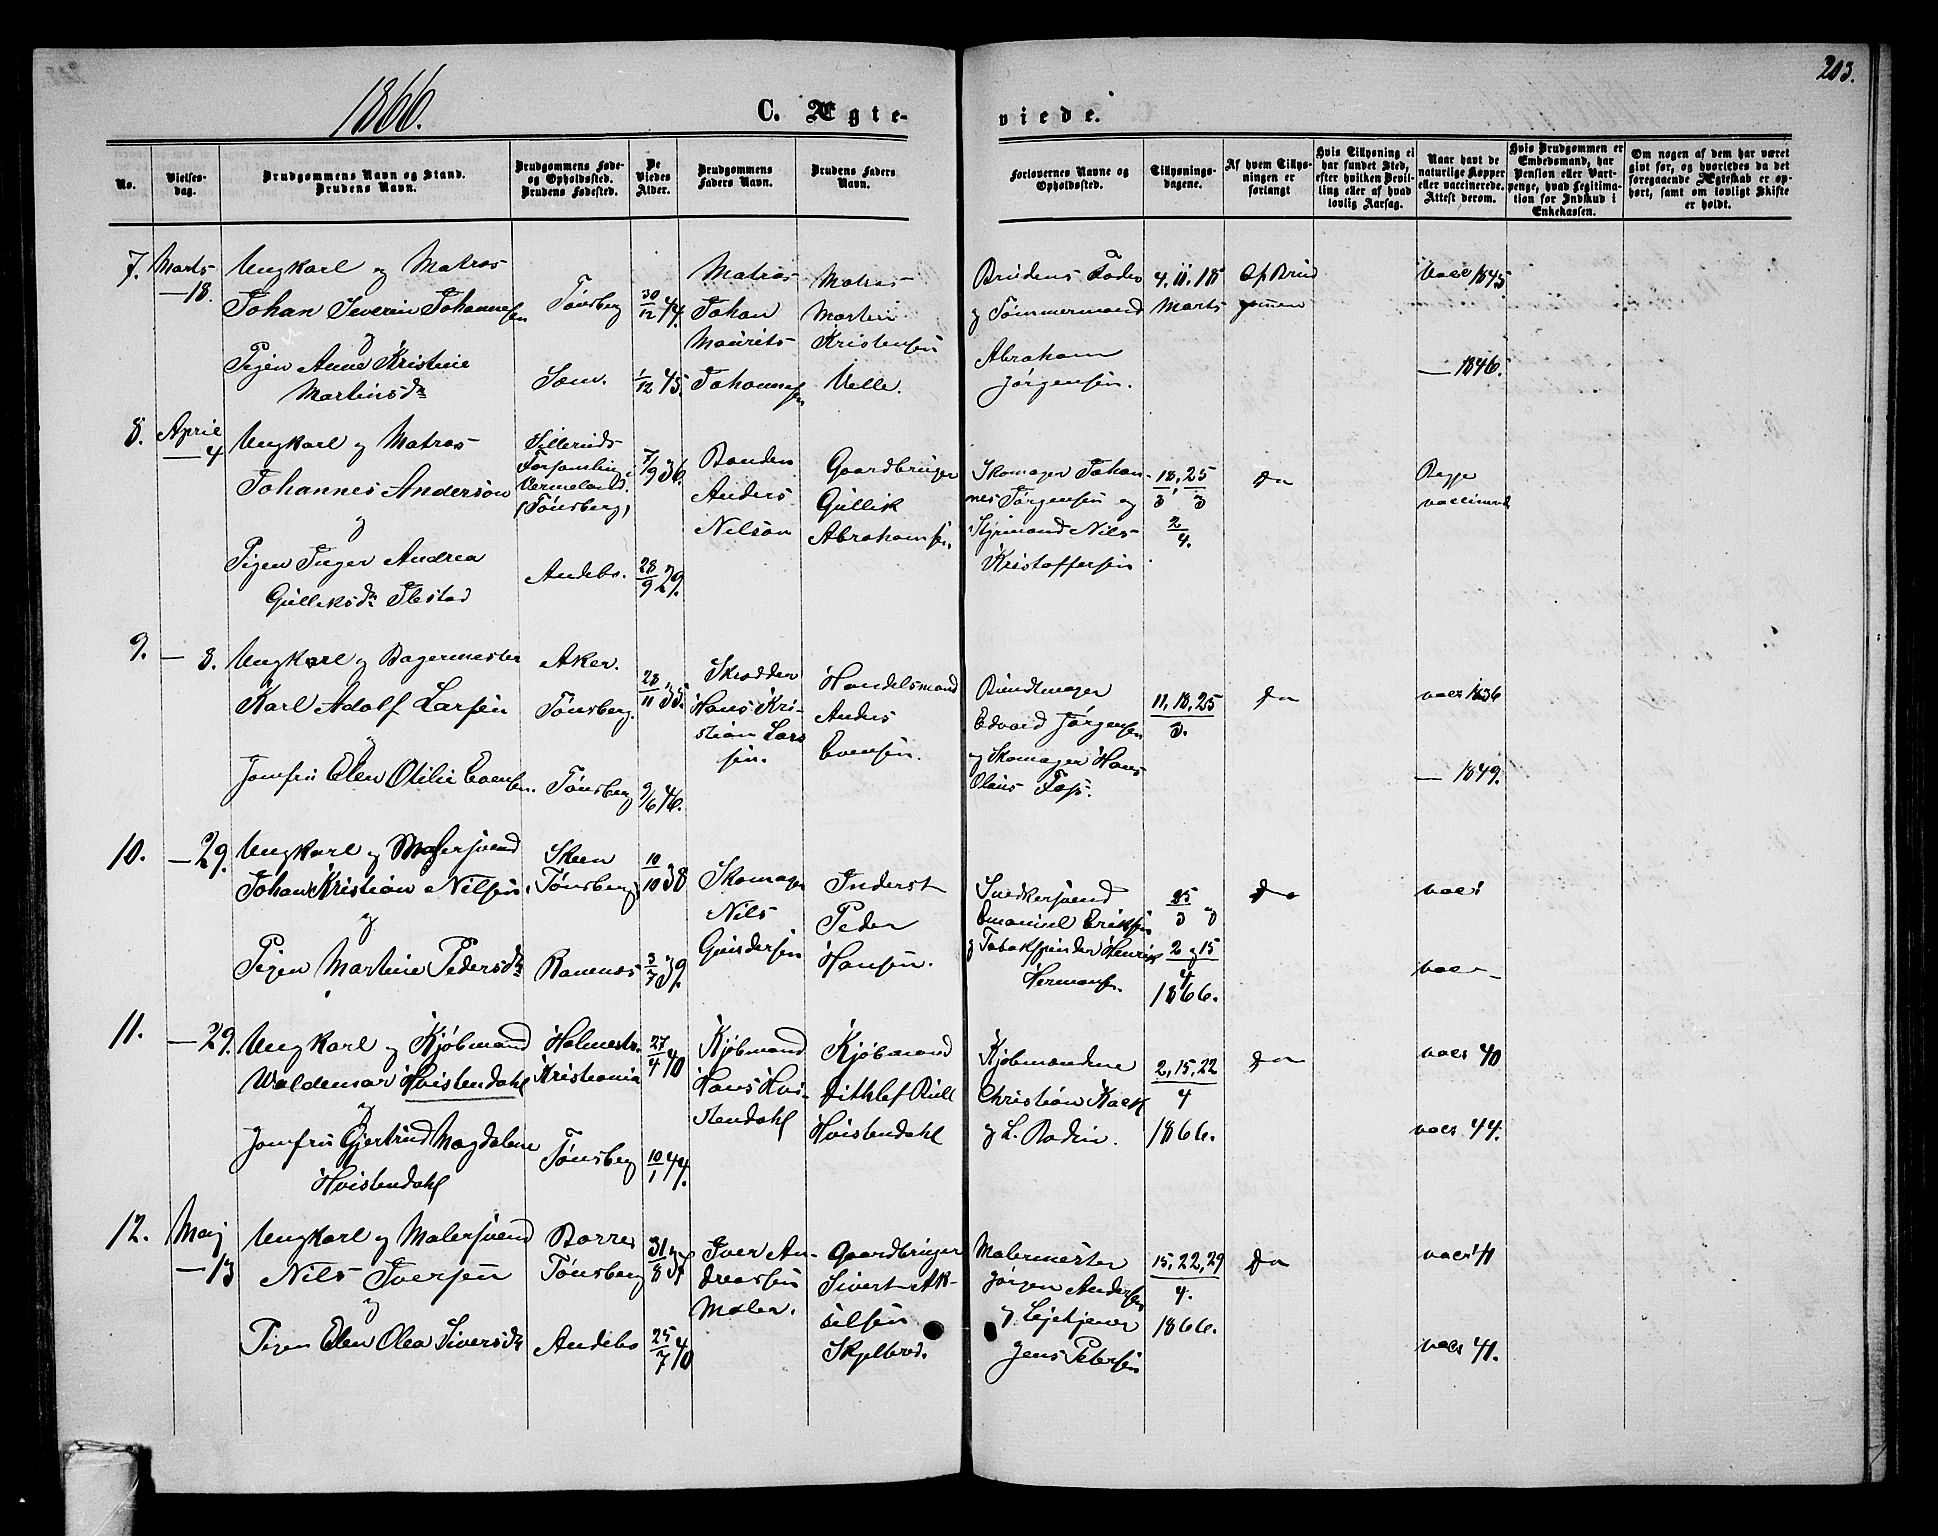 203.
1866.
C. Ægte-
viede.
No.
Vielses-
dag.
Brudgommens Navn og Stand.
Brudens Navn.
Brudgommens Føde-
og Opholdssted.
Brudens Fødested.
De
Viedes
Alder.
Brudgommens
Faders Navn.
Brudens Faders
Navn.
Forlovernes Navne og
Opholdssted.
Tillysnings-
dagene.
Af hvem Tillys-
ningen er
forlangt
Hvis Tillysning ei
har fundet Sted,
efter hvilken Bevil-
ling eller af hvad
lovlig Aarsag.
Naar havt de
naturlige Kopper
eller vaccinerede.
Attest derom.
Hvis Brudgommen er
Embedsmand, har
Pension eller Vart-
penge, hvad Legitima-
tion for Indskud i
Enkekassen.
Om nogen af dem har været
givt før, og hvorledes da det
foregaaende Ægteskab er op-
hørt, samt om lovligt Skifte
er holdt.
7.
Marts
— 18.
Ungkarl og Matros
Johan Severin Johannesen
og
Pigen Anne Kristine
Martinsdr
Tønsberg
Sem.
30/12 44.
1/12 45.
Matros
Johan
Mourits
Johannesen
Matros
Martin
Kristensen
Velle.
Brudens Fader
og Tømmermand
Abraham
Jørgensen.
4, 11, 18
Marts
Af Brud
gommen
Vacc 1845
— 1846.
8.
April
— 4
Ungkarl og Matros
Johannes Anderson
og
Pigen Inger Andrea
Gulliksdr Flestad
Silleruds
Forsamling i
Vermeland.
(Tønsberg)
Andebo.
7/9 36.
28/9 29.
Bonden
Anders
Nilson
Gaardbruger
Gullik
Abrahamsen.
Skomager Johan-
nes Jørgensen og
Styrmand Nils
Kristoffersen
18/3, 25/3
2/4.
Do
Begge
vaccinerede
9.
— 8.
Ungkarl og Bagermester
Karl Adolf Larsen
og
Jomfru Elen Otilie Evensen.
Aker.
Tønsberg.
Tønsberg
28/11 35.
9/6 46.
Skrædder
Hans Kri-
stian Lar-
sen.
Handelsmand
Anders
Evensen.
Bundtmager
Edvard Jørgensen
og Skomager Hans
Olaus Foss.
11, 18, 25
3.
Do
vacc 1836
— 1849.
10.
— 29.
Ungkarl og Malersvend
Johan Kristian Nilsen
og
Pigen Martine Pedersdr
Skeen
Tønsberg
Ramnæs
10/10 38
3/7 39.
Skomager
Nils
Gundersen
Inderst
Peder
Hansen.
Snedkersvend
Emanuel Eriksen
og Tobakspinder Henrik
Hermansen.
25/3 og
2 og 15
4
1866.
Do
vacc
vacc —
11.
— 29.
Ungkarl og Kjøbmand
Waldemar Hvistendahl
og
Jomfru Gjertrud Magdalene
Hvistendahl
Holmestr.
Kristiania
Tønsberg
27/4 40
10/1 44.
Kjøbmand
Hans Hvi-
stendahl
Kjøbmand
Dithlef Riell
Hvistendahl
Kjøbmændene
Christian Kaer
og L. Bodin.
2, 15, 22
4
1866.
Do
vacc 40
vacc 44.
12.
Maj
— 13
Ungkarl og Malersvend
Nils Iversen
og
Pigen Elen Olea Siversdr
Borre
Tønsberg
Andebo
31/8 38
25/7 40
Iver An-
dreassen
Maler.
Gaardbruger
Sivert Ak-
selsen
Skjelbred.
Malermester
Jørgen Andersen
og Lejetjener
Jens Petersen
15, 22, 29
4.
1866.
Do
vacc 41
vacc 41.